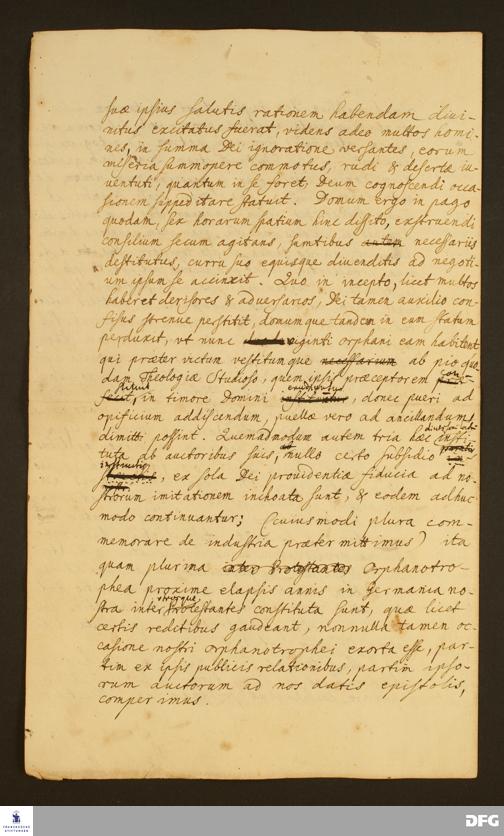 suæ ipsius salutis rationem habendam divi-
nitus excitatus fuerat, videns adeo multos homi-
nes, in summa Dei ignoratione versantes, eorum
miseria summopere commotus, rudi & desertæ iu-
ventuti, quantum in se foret, Deum cognoscendi occa-
sionem suppeditare statuit. Domum ergo in pago
quodam, sex horarum spatium hinc dissito, exstruendi
consilium secum agitans, sumtibus autem necessariis
destitutus, curru suo equisque divenditis ad negoti-
um ipsum se accinxit. Quo in incepto, licet multos
haberet derisores & adversarios, Dei tamen auxilio con-
fisus strenue perstitit, domumque tandem in eum statum
perduxit, ut nunc viginti orphani eam habitent
qui præter victum vestitumque necessarium ab pio quo-
dam Theologiæ Studioso, quem ipsis præceptorem
in timore Domini erudiuntur, donec pueri ad
opificium addiscendum, puellæ vero ad ancillandum
dimitti possint. Quemadmodum autem tria hæc insti-
tuta ab auctoribus suis, nullo certo subsidio
ex sola Dei providentiæ fiducia ad no-
strorum imitationem inchoata sunt, & eodem adhuc
modo continuantur; (cuiusmodi plura com-
memorare de industria prætermittimus) ita
quam plurima inter Protestantes Orphanotro-
phea proxime elapsis annis in Germania no-
stra inter utrosque Protestantes constituta sunt, quæ licet
certis reditibus gaudeant, nonnulla tamen oc-
casione nostri orphanotrophei exorta esse, par-
tim ex ipsis publicis relationibus, partim ipso-
rum auctorum ad nos datis epistolis,
comperimus.
FRANCKESCHE
STIFTUNGEN
DFG